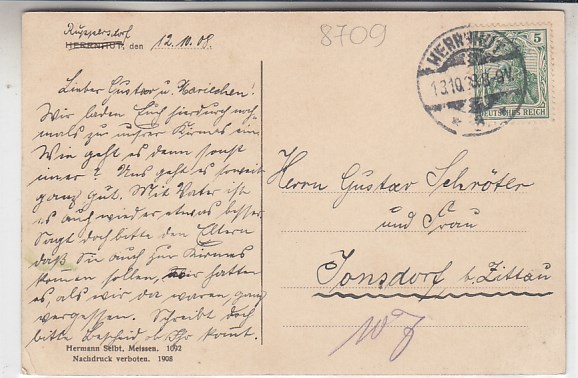 Ruppersdorf
HERRNHUT, den 12.10.08.
8709
HERRNHUT
13.10.08.8-9V.
5
DEUTSCHES REICH
Lieber Gustav u. Mariechen!
Wir laden Euch hierdurch noch-
mals zu unsrer Kirmes ein.
Wie geht es denn sonst
immer? Uns geht es soweit
ganz gut. Mit Vater ist
es auch wieder etwas besser.
Sagt doch bitte den Eltern
daß Sie auch zur Kirmes
kommen sollen, wir hatten
es, als wir da waren ganz
vergessen. Schreibt doch
bitte Bescheid ob Ihr komt.
Herrn Gustav Schröter
und Frau
Jonsdorf b. Zittau
Hermann Seibt, Meissen. 1092
Nachdruck verboten. 1908